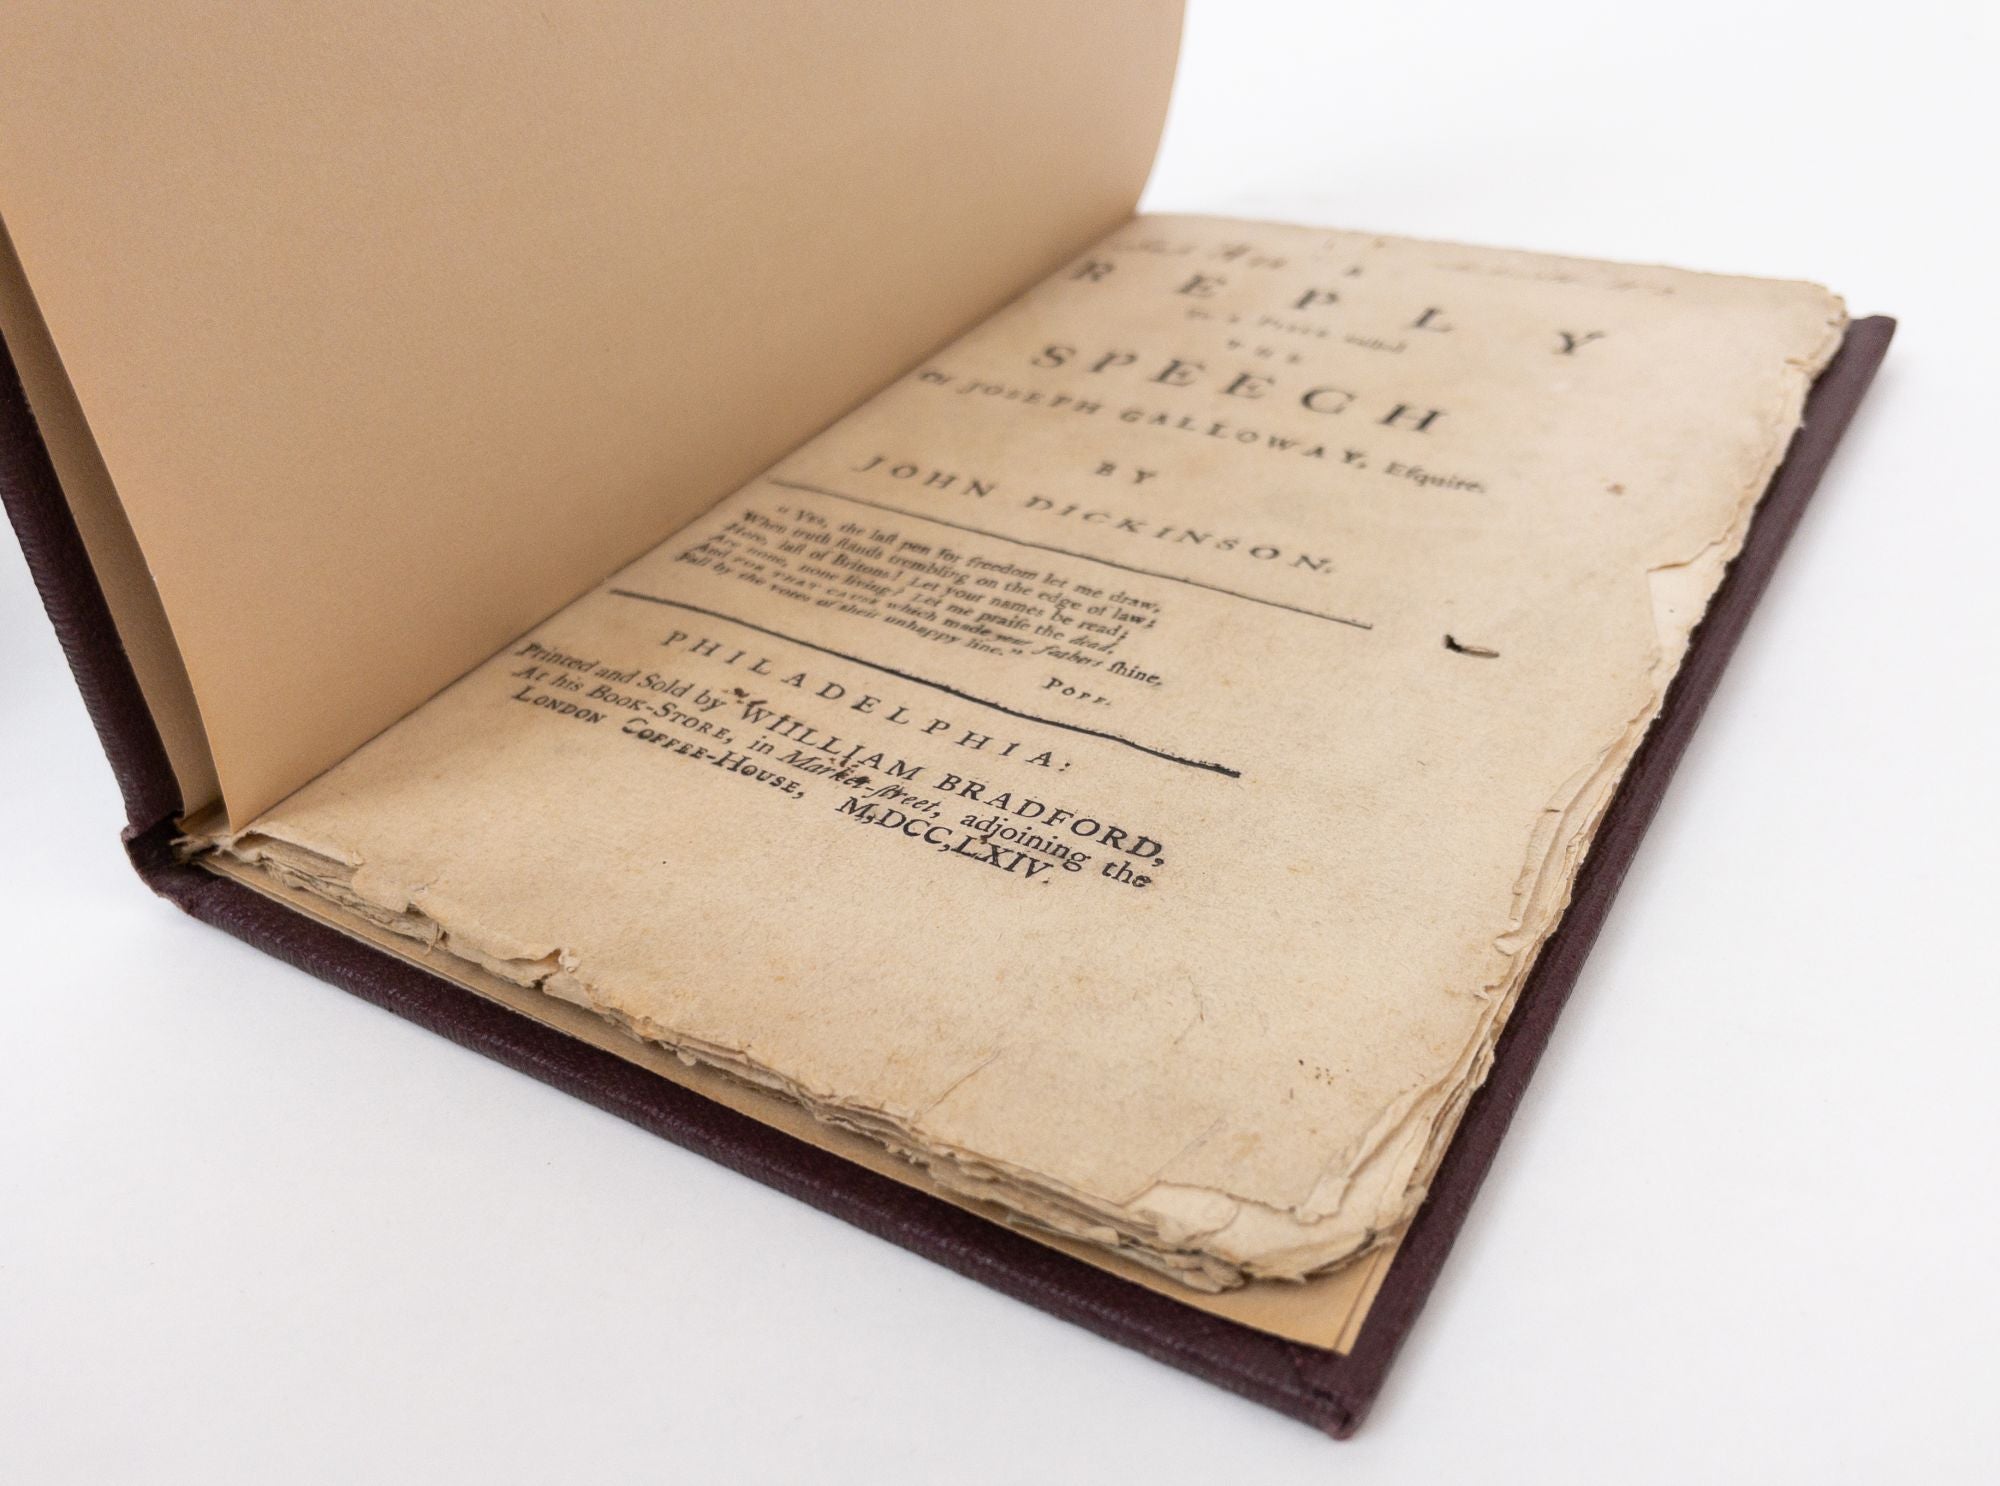 A
REPLY
To a PIECE called
THE
SPEECH
Of JOSEPH GALLOWAY, Eſquire.
BY
JOHN DICKINSON.
“ Yes, the laſt pen for freedom let me draw,
When truth ſtands trembling on the edge of law;
Here, laſt of Britons! Let your names be read;
Are none, none living? Let me praiſe the dead,
And FOR THAT CAUSE which made your fathers ſhine,
Fall by the votes of their unhappy line.”
POPE.
PHILADELPHIA:
Printed and Sold by WILLIAM BRADFORD,
At his BOOK-STORE, in Market-ſtreet, adjoining the
LONDON COFFEE-HOUSE, M,DCC,LXIV.